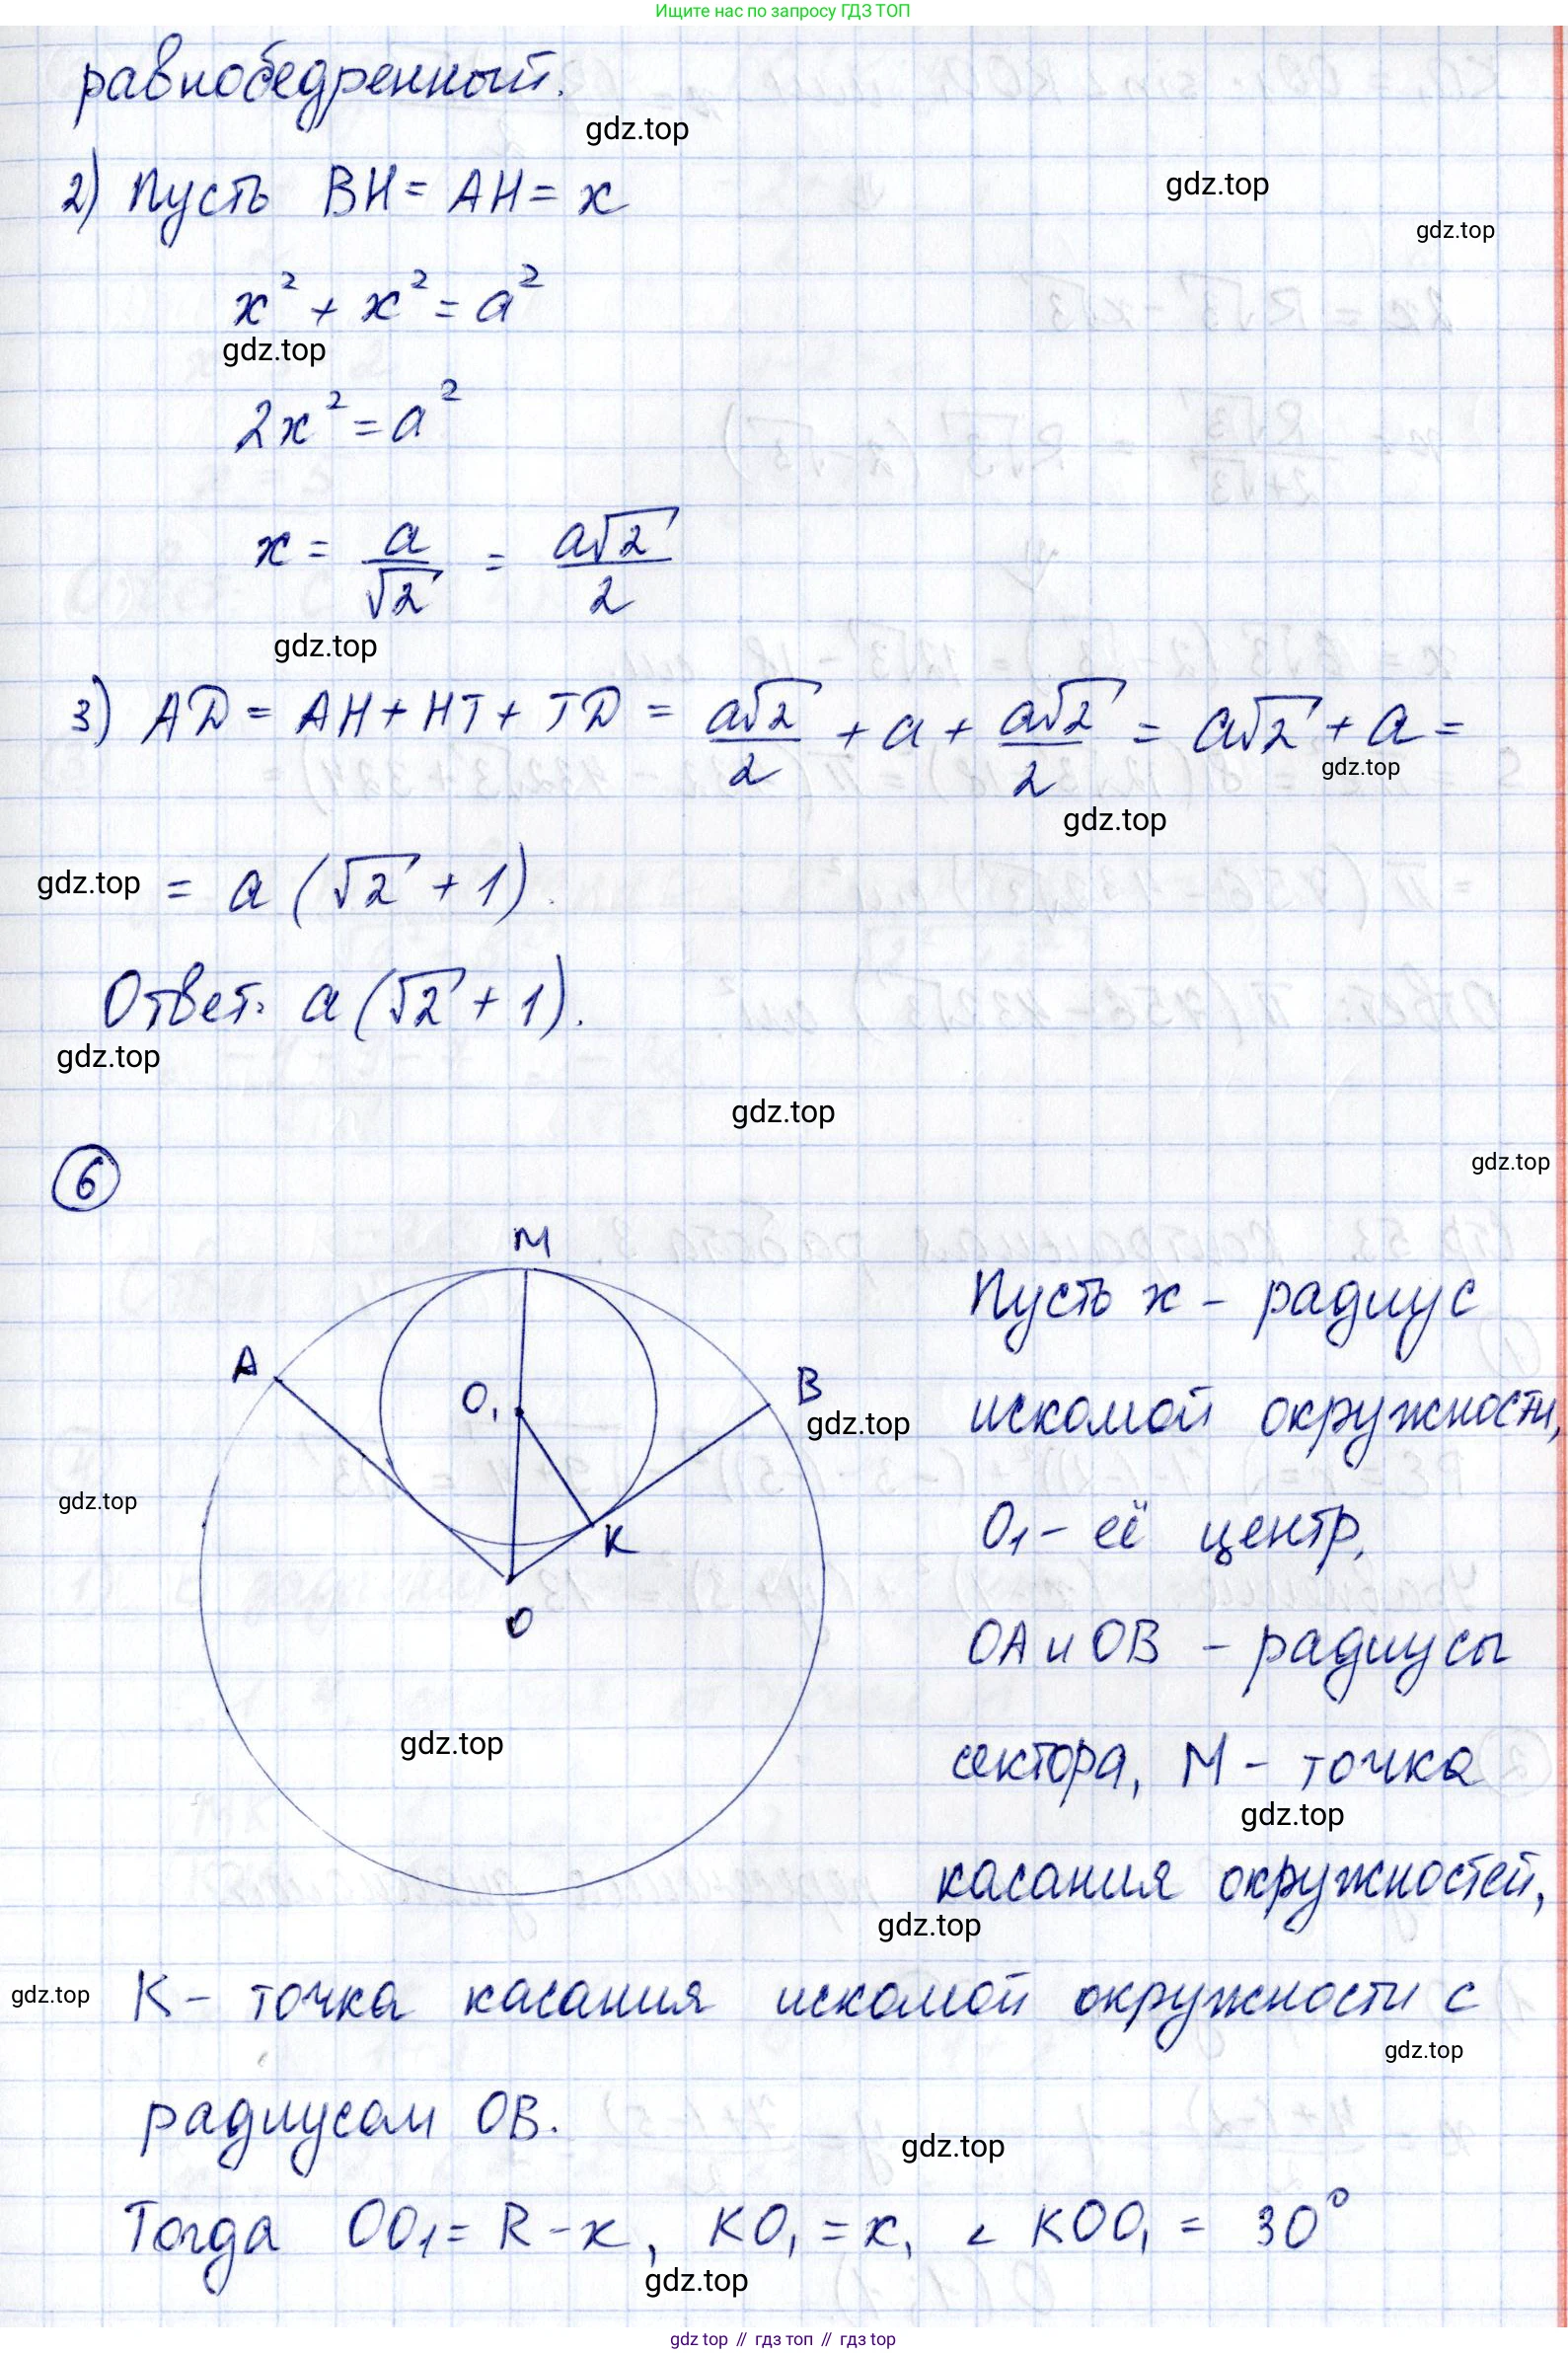 Ищите нас по запросу ГДЗ ТОП
равнобедренный.
gdz.top
2) Пусть BH = AH = x
gdz.top
gdz.top
x² + x² = a²
gdz.top
2x² = a²
x = a/√2 = a√2/2
gdz.top
3) AD = AH + HT + TD = a√2/2 + a + a√2/2 = a√2 + a =
gdz.top
gdz.top
gdz.top
= a (√2 + 1).
Ответ: a (√2 + 1).
gdz.top
gdz.top
gdz.top
6
M
A
B
O₁
K
O
Пусть x - радиус
искомой окружности,
gdz.top
gdz.top
O₁ - её центр,
OA и OB - радиусы
gdz.top
сектора, M - точка
gdz.top
касания окружностей,
gdz.top
gdz.top
K - точка касания искомой окружности с
gdz.top
радиусом OB.
gdz.top
Тогда OO₁ = R - x, KO₁ = x, ∠ KOO₁ = 30°
gdz.top
gdz top // гдз топ // гдз top